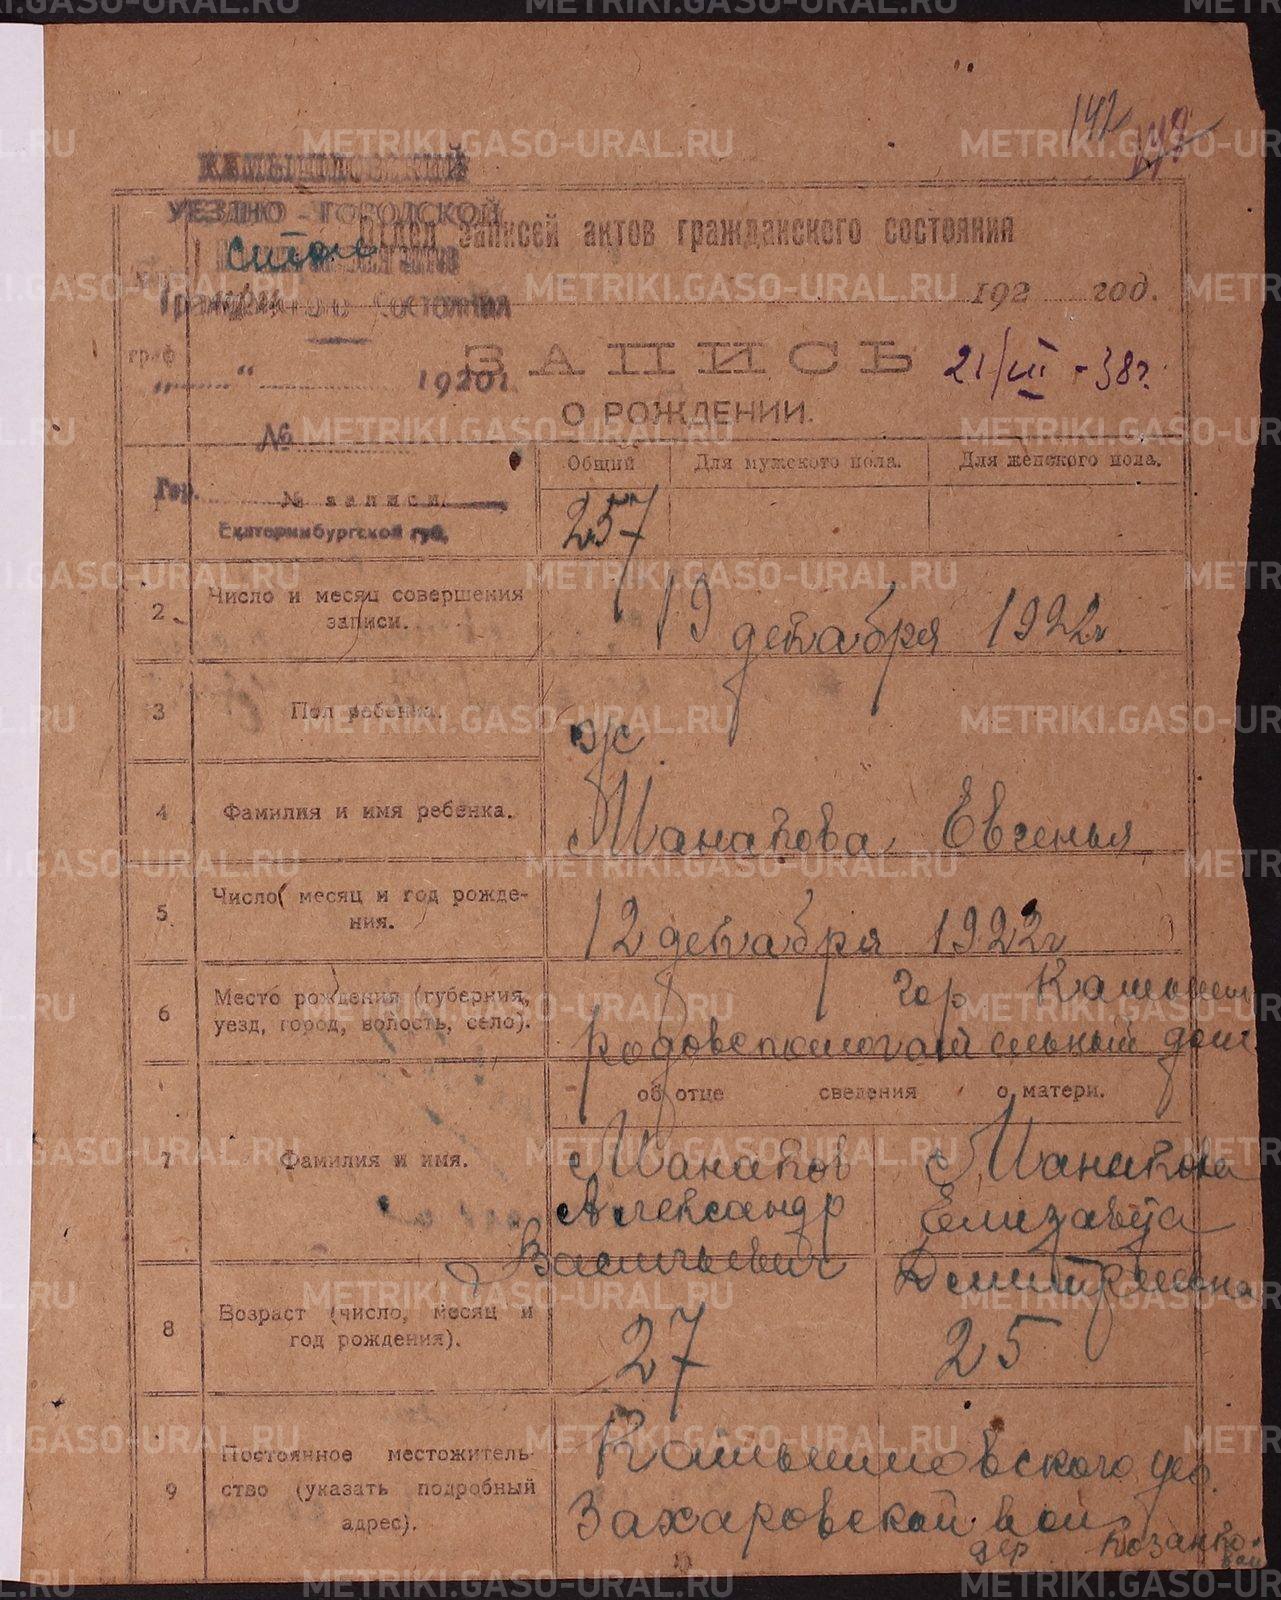 142
КАМЫШЛОВСКИЙ
УЕЗДНО - ГОРОДСКОЙ
Отдел записей актов гражданского состояния
Гражданского Состояния
192 год.
граф
ЗАПИСЬ
21/III - 38г.
„ “ 1920г.
О РОЖДЕНИИ.
№
Общий
Для мужского пола.
Для женского пола.
Гор.
№ записи
257
Екатеринбургской губ.
2
Число и месяц совершения
записи.
19 декабря 1922г.
3
Пол ребенка.
ж
4
Фамилия и имя ребенка.
Манакова Евгенья
5
Число месяц и год рожде-
ния.
12 декабря 1922г
6
Место рождения (губерния,
уезд, город, волость, село).
гор Камышл
родовспомогательный дом
об отце сведения о матери.
7
Фамилия и имя.
Манаков
Александр
Васильевич
Манакова
Елизавета
Демитриевна
8
Возраст (число, месяц и
год рождения).
27
25
9
Постоянное местожитель-
ство (указать подробный
адрес).
Камышловского уез.
Захаровской вол
дер Козанко-
вой
METRIKI.GASO-URAL.RU